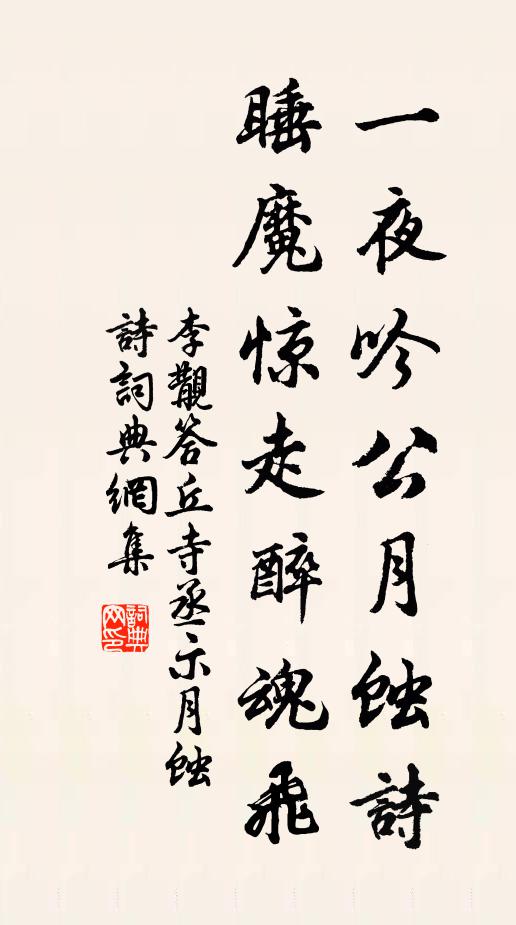 一夜吟公月蝕詩
睡魔惊走醉魂飛
李觀答丘寺丞示月蝕
詩詞典網集
詞典
网印